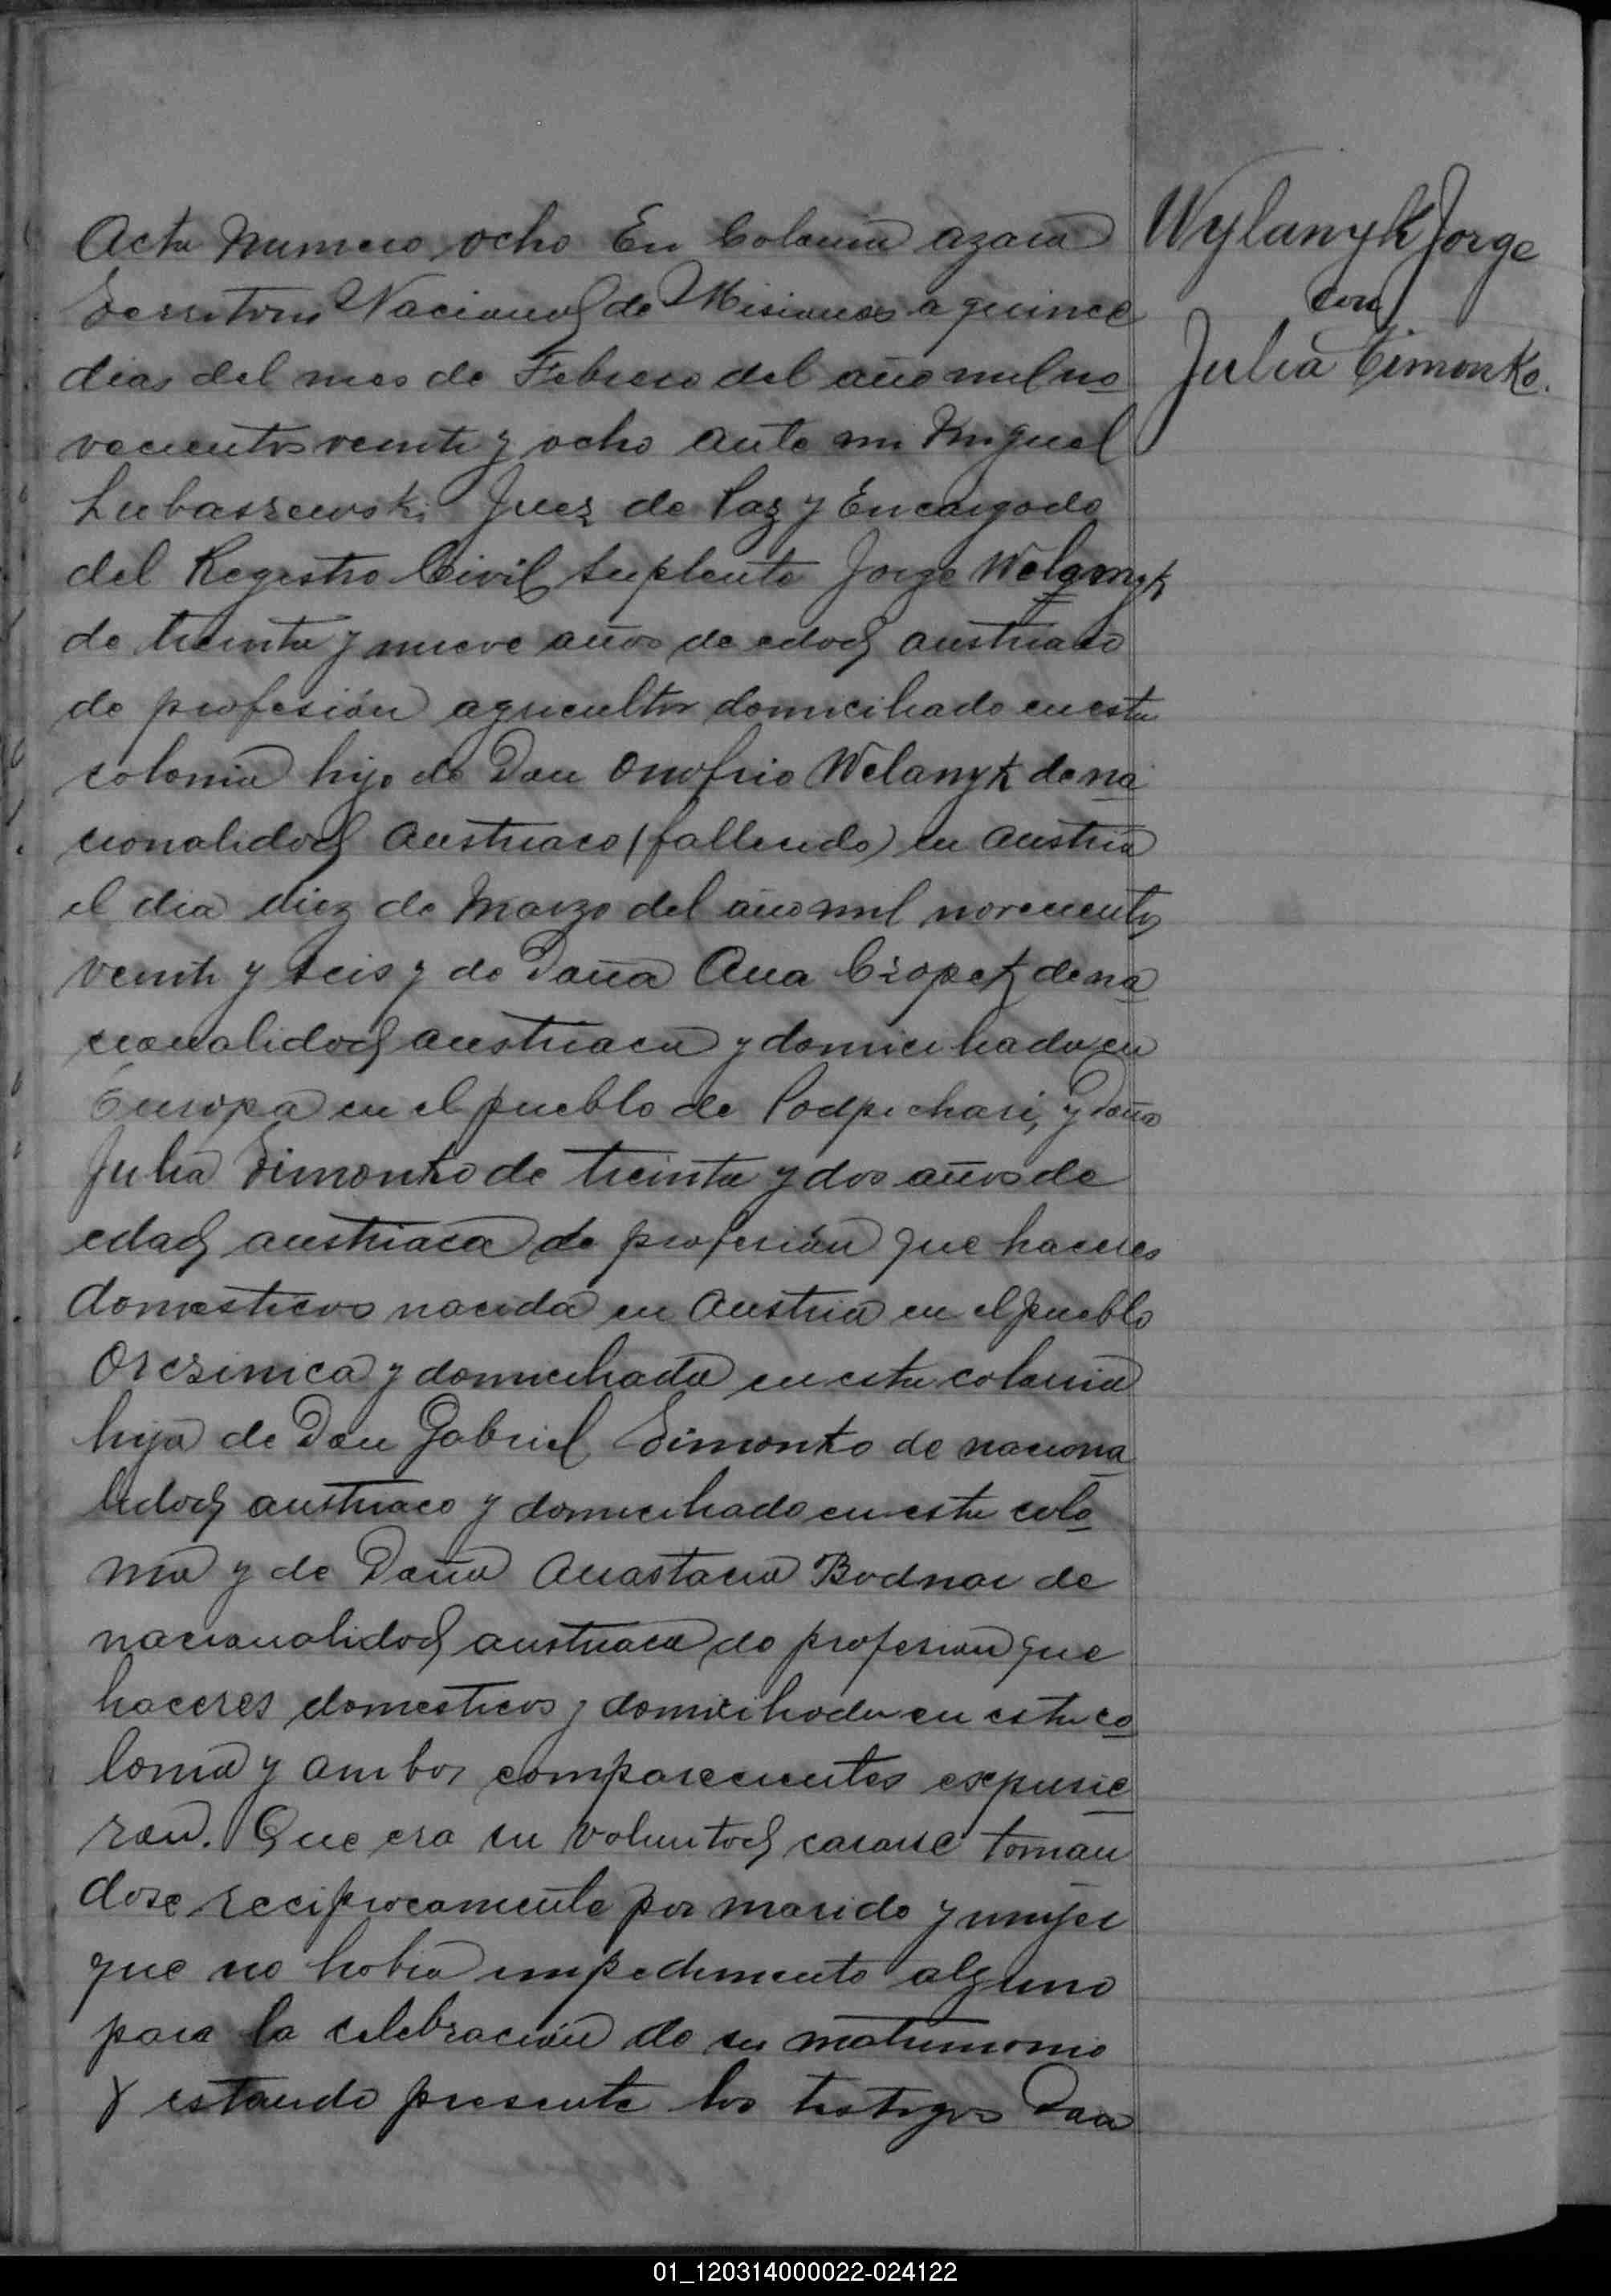 Acta Numero ocho En Colonia azara
Territorio Nacional de Misiones a quince
dias del mes de Febrero del año mil no
vecientos veinte y ocho ante mi Miguel
Lubaszewski Juez de Paz y Encargado
del Registro Civil Suplente Jorge Welanyk
de treinta y nueve años de edad austriaco
de profesión agricultor domiciliado en esta
colonia hijo de Don Onofrio Welanyk de na
cionalidad Austriaco (fallecido) en Austria
el dia diez de Marzo del año mil novecientos
veinte y seis y de Doña Ana Czopek de na
cionalidad austriaca y domiciliada en
Europa en el pueblo de Podpechari, y Doña
Julia Timonko de treinta y dos años de
edad austriaca de profesión que haceres
domesticos nacida en Austria en el pueblo
Oreszinica y domiciliada en esta colonia
hija de Don Gabriel Timonko de naciona
lidad austriaco y domiciliado en esta colo
nia y de Doña Anastacia Bodnar de
nacionalidad austriaca de profesion que
haceres domesticos y domiciliada en esta co
lonia y ambos comparecientes expusie
ron. Que era su voluntad casarse toman
dose reciprocamente por marido y mujer
que no habia impedimento alguno
para la celebración de su matrimonio
Y estando presente los testigos Don
Wylanyk Jorge
con
Julia Timonko.
01_120314000022-024122